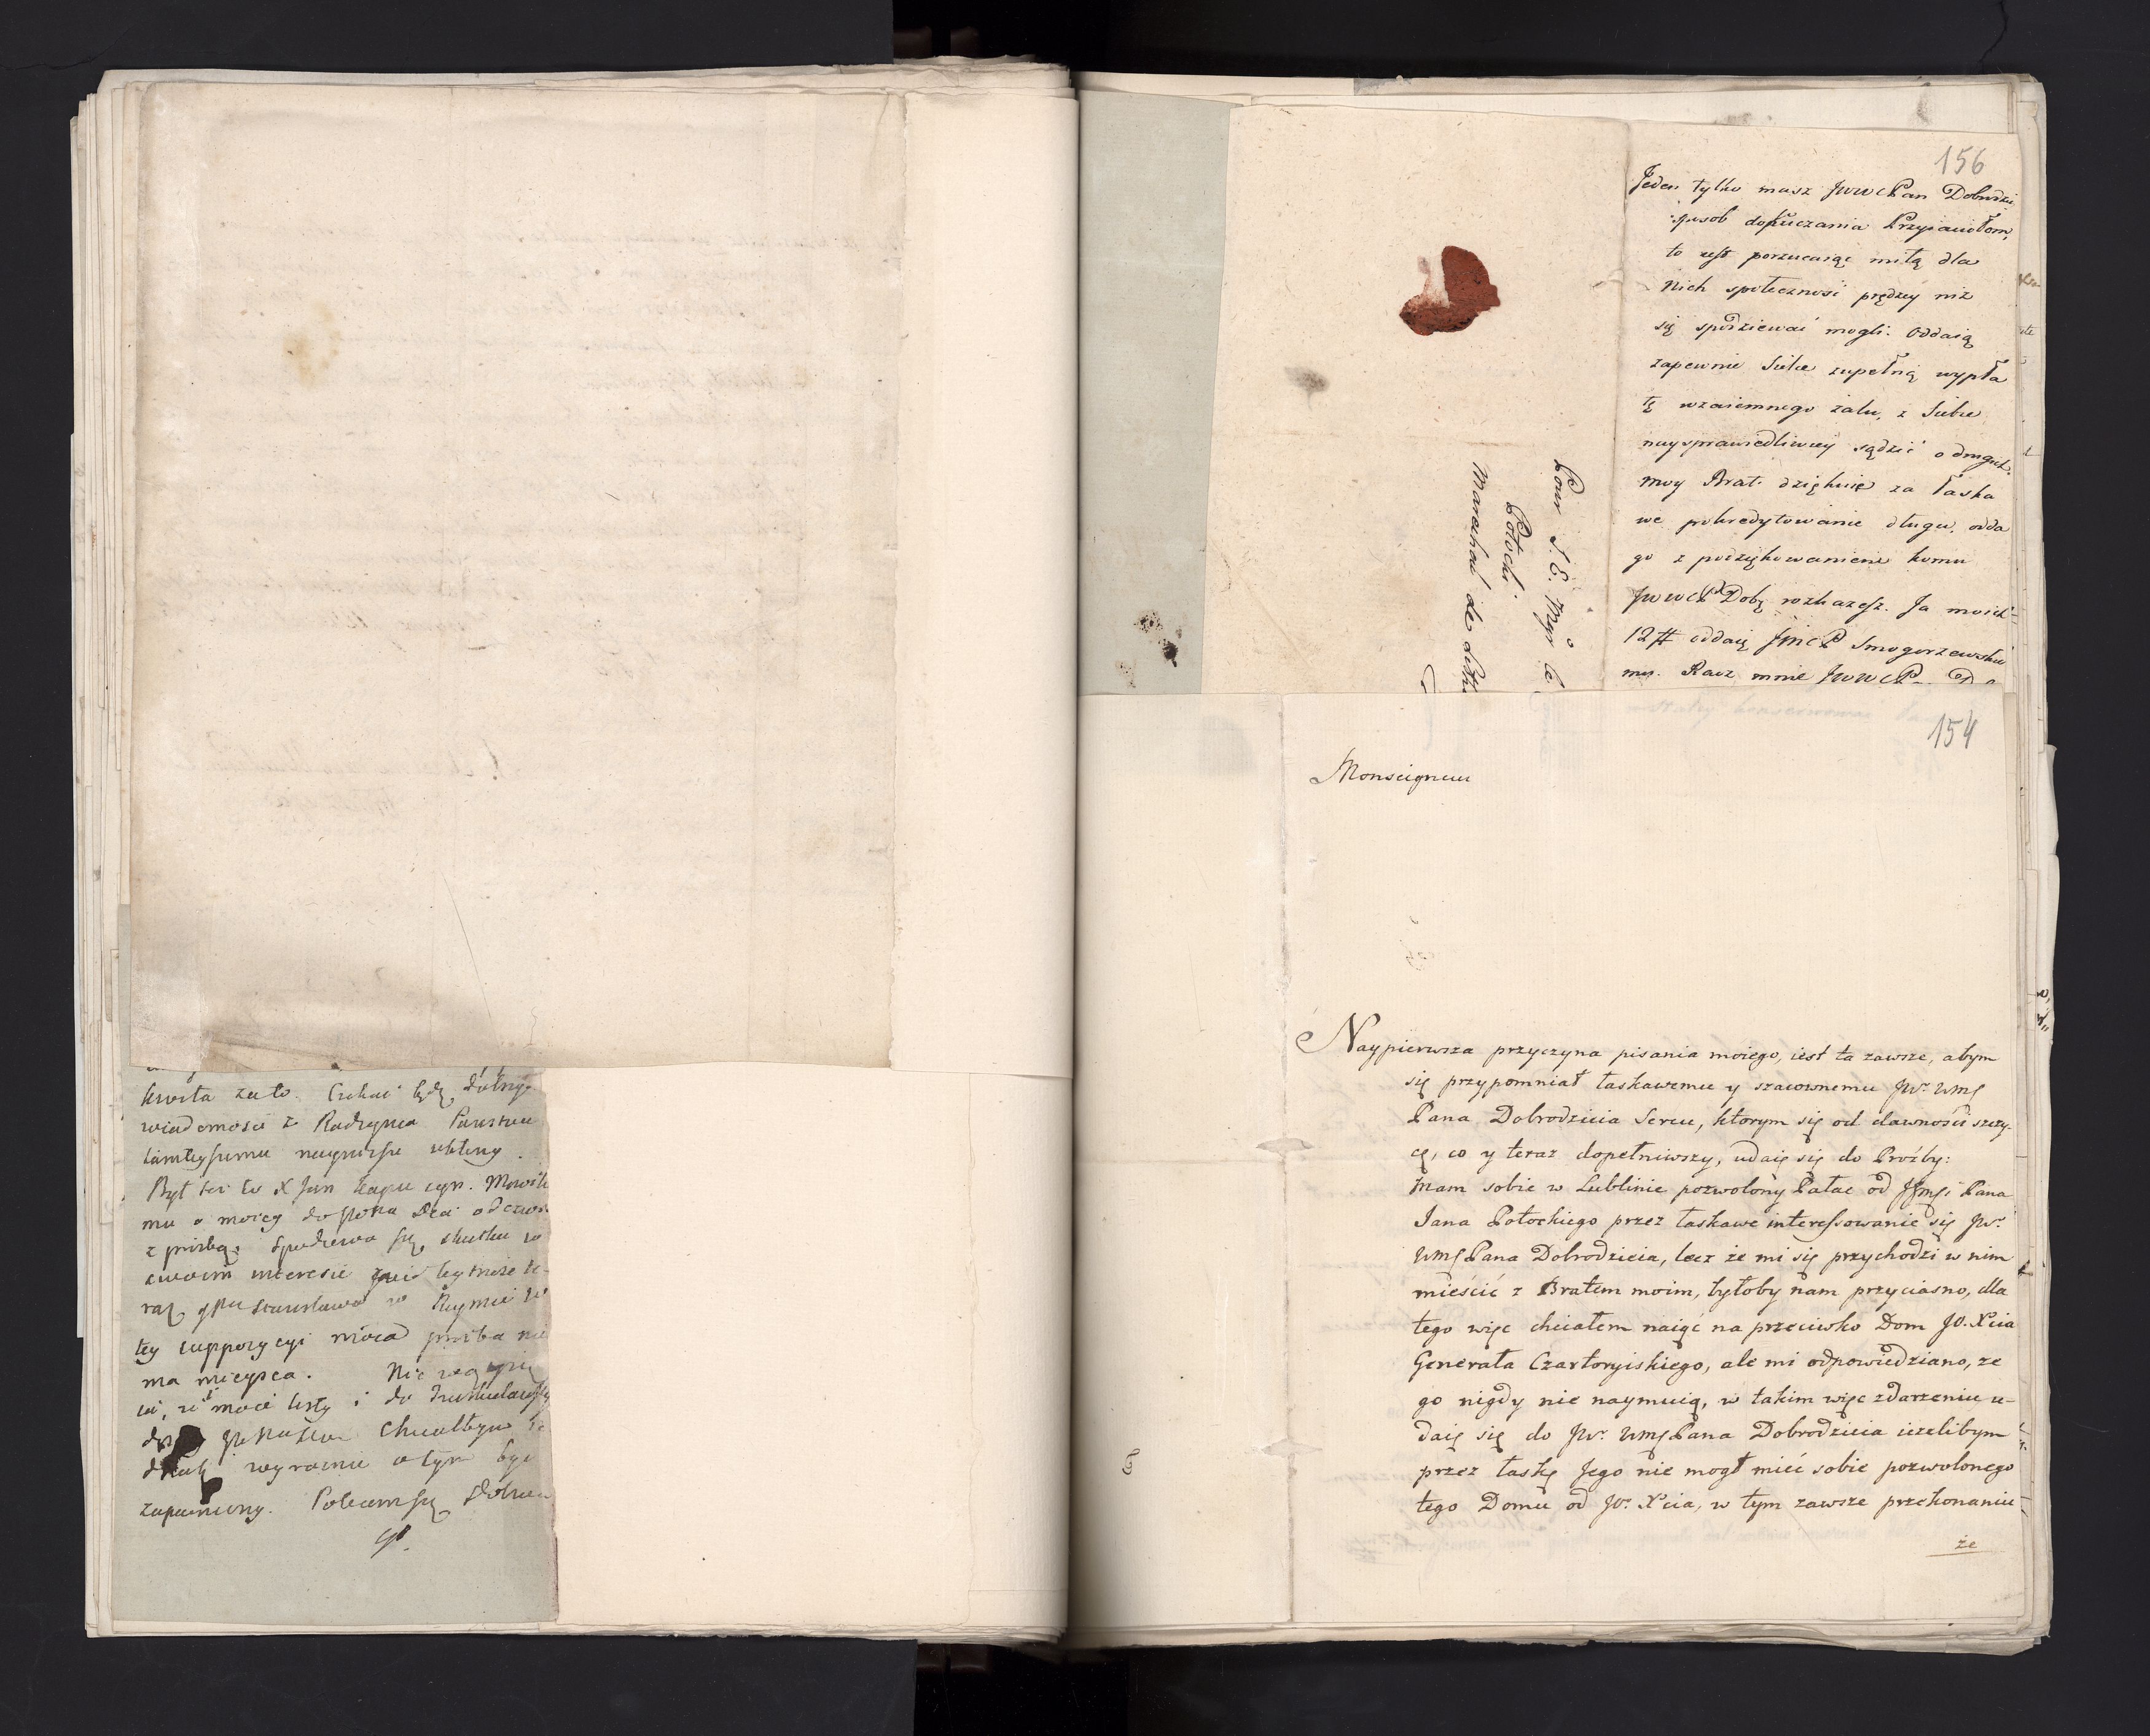 kwota za to. Czekać będę dalszey
wiadomości z Radzynia Panstwu
tamteyszemu nayniższe ukłony.
Był tu to X Jan kapucyn. Mowił
mu o moiey do
z prozbą. Spodziewa się skutku w
swoim interesie
raz Stanisława w Rzymie w
tey suppozycyi moia prozba nie
ma mieysca. Nie
że moie listy i do
chciałbym
wyraznie o tym być
zapewniony. Polecam się
156
Jeden tylko masz JWWCPan Dobrodzi
sposob dokuczania Przyiaciołom,
to iest porzucaiąc miłą dla
Nich społeczność prędzey niż
się spodziewać mogli. Oddaią
zapewnie Sobie zupełną wypła
tę wzaiemnego żalu, z Siebie
naysprawiedliwiey sądzić o drugich.
moy Brat dziękuie za łaska
we pokredytowanie długu, odda
go z podziękowaniem komu
JWWCP Dobr rozkażesz. Ja moich
12# oddaię JmcP Smogorzewskie
mu. Racz mnie JWWCP
Pour S. E. Mgr le
Potocki
Marechal de Lith
154
Monseigneur
Naypierwsza przyczyna pisania moiego, iest ta zawsze, abym
się przypomniał łaskawemu y szacownemu JW. WMS
Pana Dobrodzieia Sercu, ktorym się od dawności szczy-
cę, co y teraz dopełniwszy, udaię się do Proźby:
Mam sobie w Lublinie pozwolony Pałac od JJmści Pana
Jana Potockiego przez łaskawe interessowanie się JW.
WMS Pana Dobrodzieia, lecz że mi się przychodzi w nim
mieścić z Bratem moim, byłoby nam przyciasno, dla
tego więc chciałem naiąć na przeciwko Dom JO. Xcia
Generała Czartoryiskiego, ale mi odpowiedziano, że
go nigdy nie naymuią, w takim więc zdarzeniu u-
daię się do JW. WMS Pana Dobrodzieia ieżelibym
przez łaskę Jego nie mogł mieć sobie pozwolonego
tego Domu od JO. Xcia, w tym zawsze przekonaniu
że